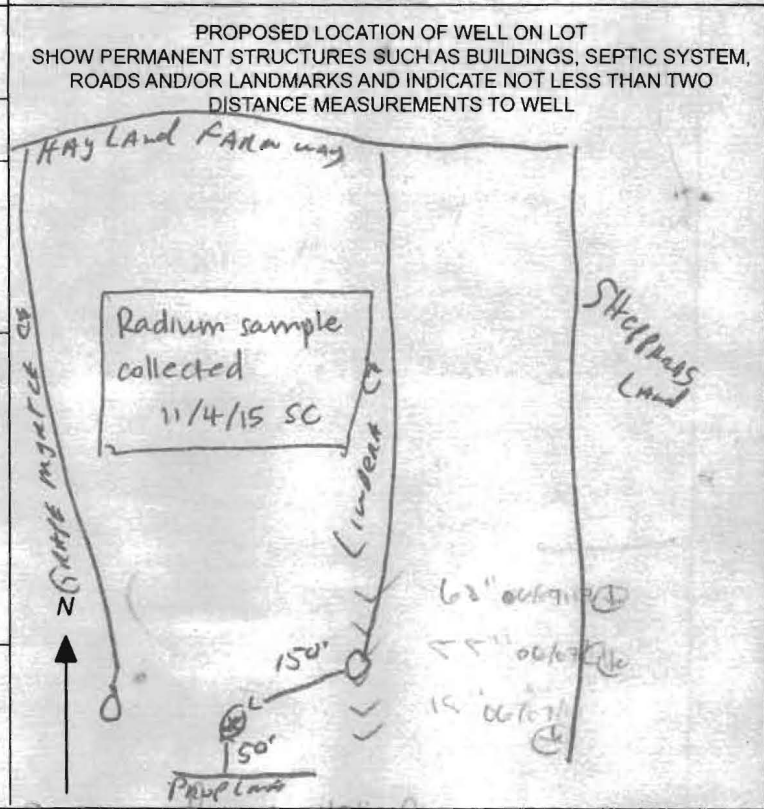 PROPOSED LOCATION OF WELL ON LOT
SHOW PERMANENT STRUCTURES SUCH AS BUILDINGS, SEPTIC SYSTEM,
ROADS AND/OR LANDMARKS AND INDICATE NOT LESS THAN TWO
DISTANCE MEASUREMENTS TO WELL
HAYLAND FARM WAY
Radium sample
collected
11/4/15 SC
GRAPE MYRTLE CT
LINDERA CT
SHEPPARDS
LAND
N
150'
50'
PROP LINE